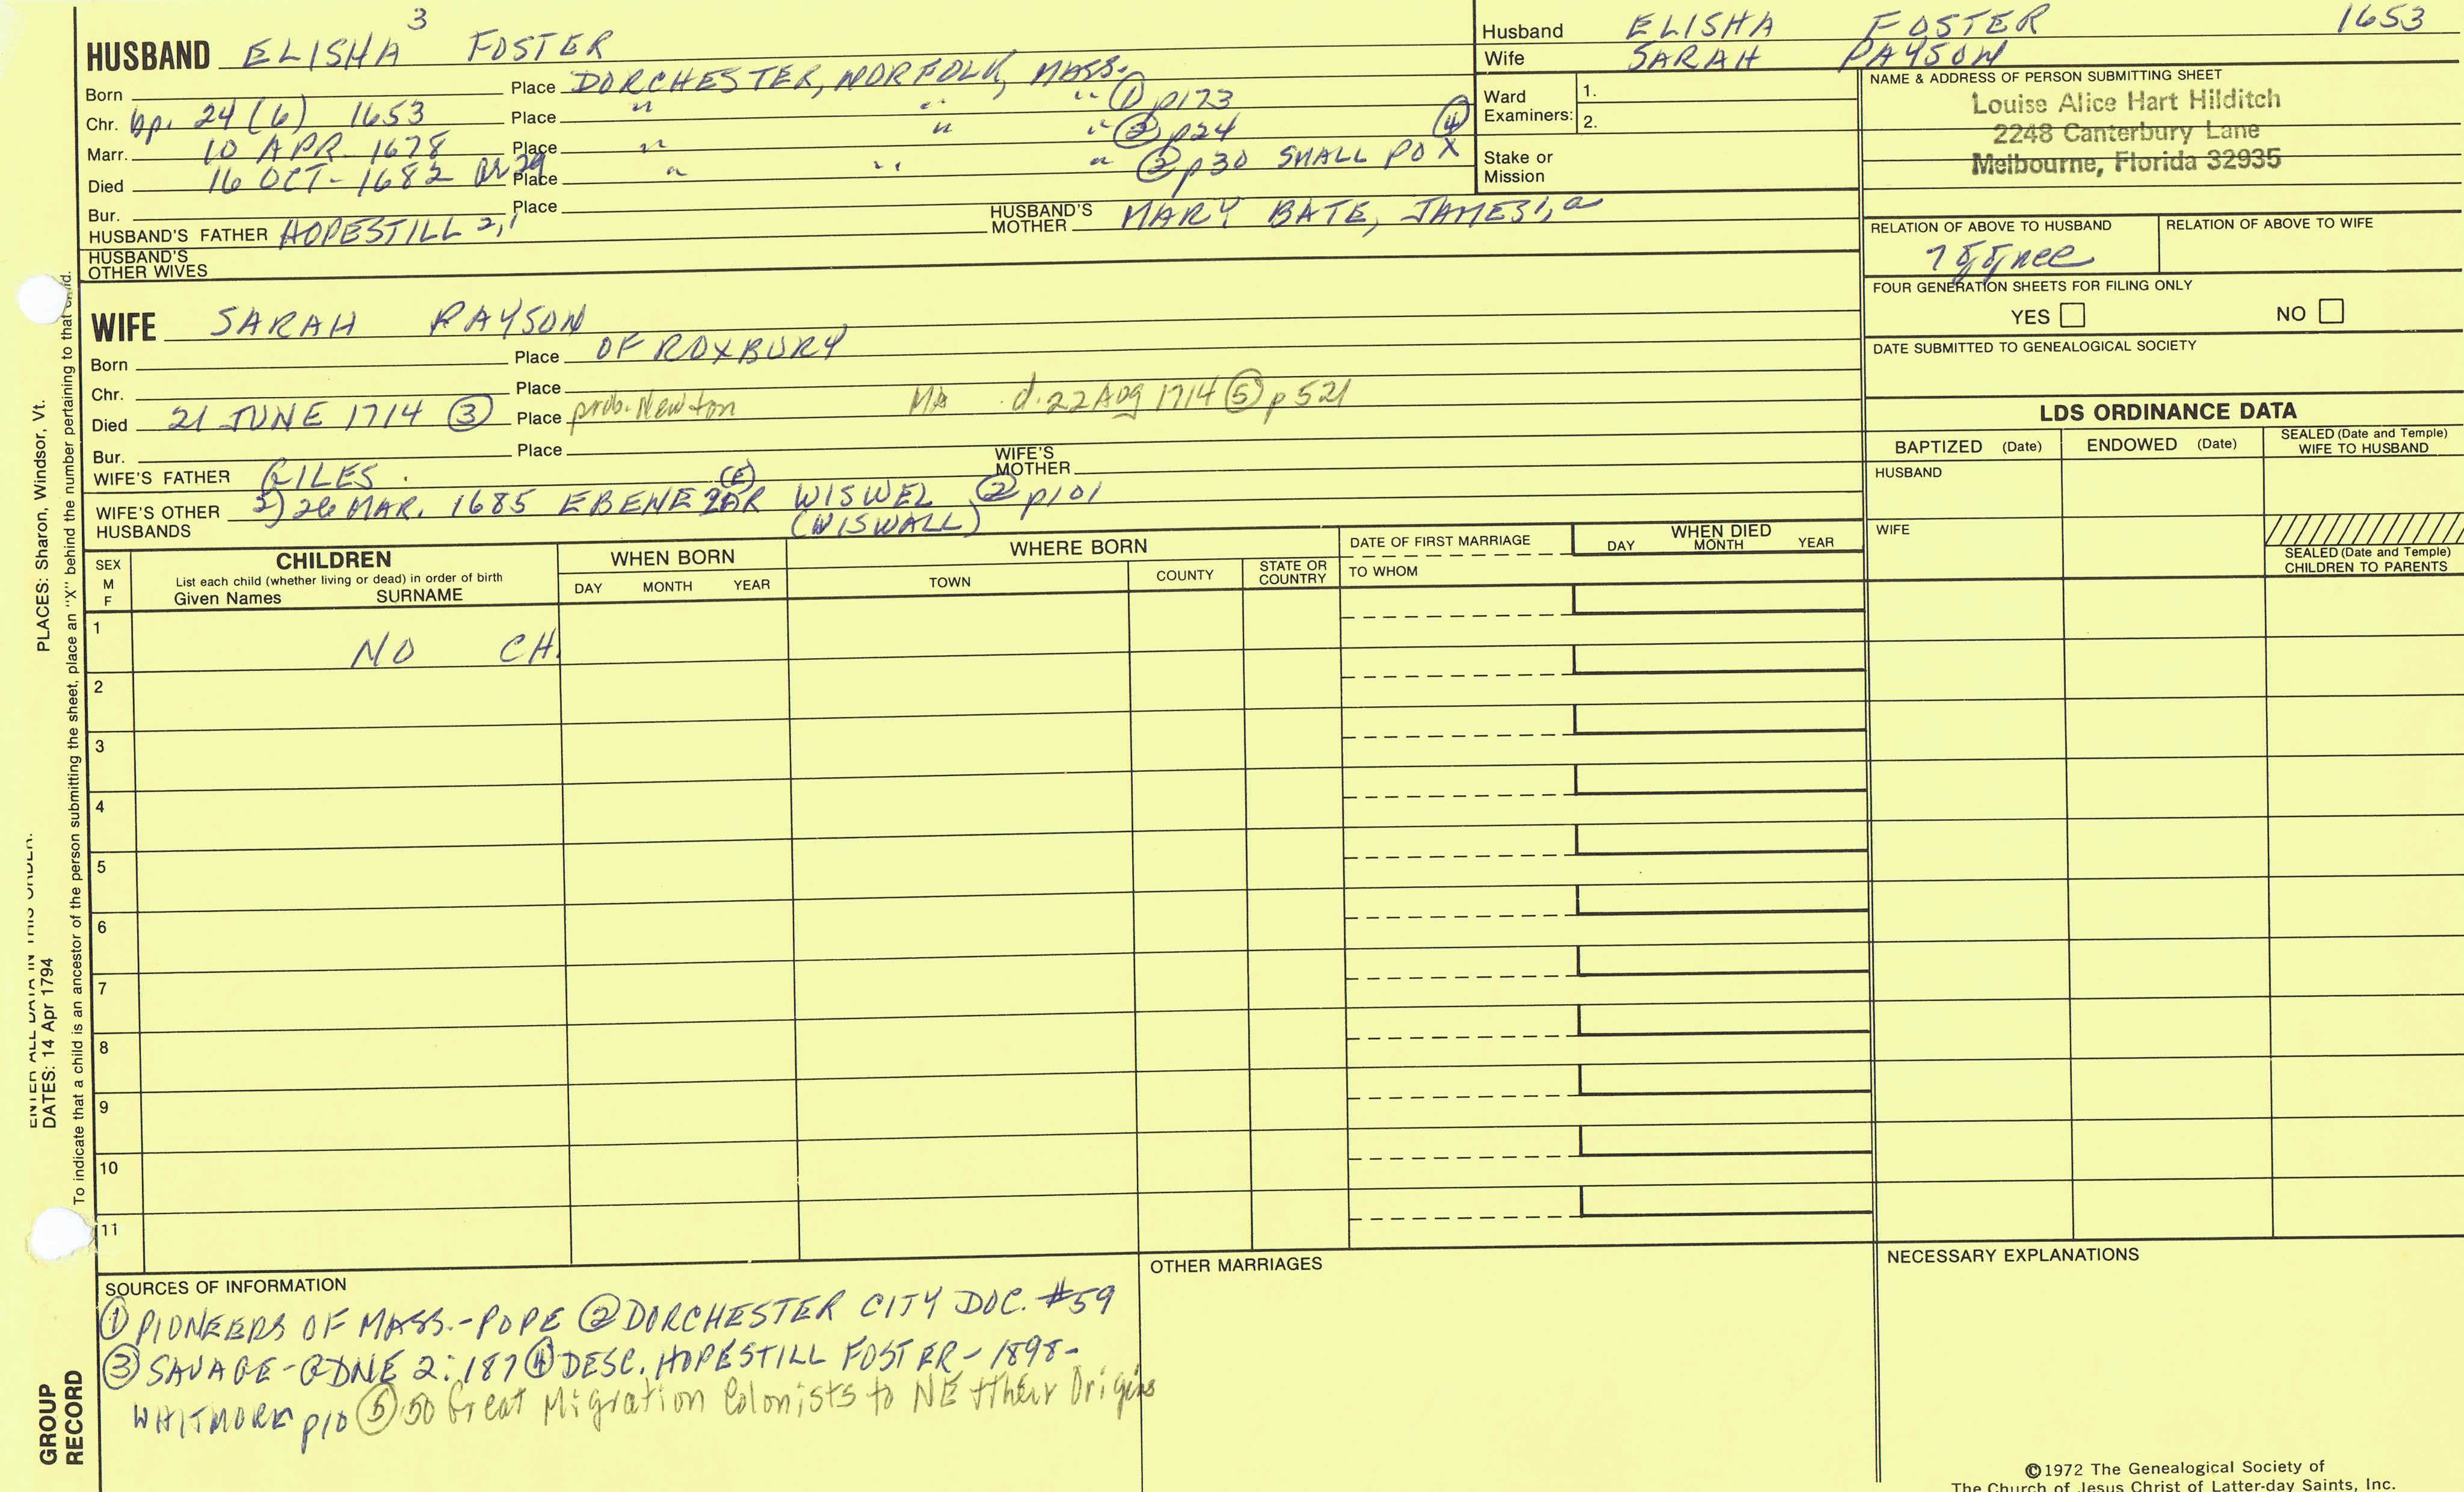 3
HUSBAND ELISHA FOSTER
Born Place DORCHESTER, NORFOLK, MASS.
Chr. bp. 24 (6) 1653 Place " " " ① p173
Marr. 10 APR. 1678 Place " " " ② p24
Died 16 OCT- 1682 or 29 Place " " " ② p30 SMALL POX ④
Bur. Place
HUSBAND'S FATHER HOPESTILL 2,1 HUSBAND'S MOTHER MARY BATE, JAMES1,a
HUSBAND'S OTHER WIVES
Husband ELISHA FOSTER 1653
Wife SARAH PAYSON
Ward Examiners: 1.
2.
Stake or Mission
NAME & ADDRESS OF PERSON SUBMITTING SHEET
Louise Alice Hart Hilditch
2248 Canterbury Lane
Melbourne, Florida 32935
RELATION OF ABOVE TO HUSBAND RELATION OF ABOVE TO WIFE
FOUR GENERATION SHEETS FOR FILING ONLY
YES NO
DATE SUBMITTED TO GENEALOGICAL SOCIETY
WIFE SARAH PAYSON
Born Place OF ROXBURY
Chr. Place
Died 21 JUNE 1714 ③ Place prob. Newton MA d. 22 Aug 1714 ⑤ p 521
Bur. Place
WIFE'S FATHER GILES. WIFE'S MOTHER
(E)
WIFE'S OTHER HUSBANDS 2) 26 MAR. 1685 EBENEZAR WISWEL ② p101
(WISWALL)
LDS ORDINANCE DATA
BAPTIZED (Date) ENDOWED (Date) SEALED (Date and Temple) WIFE TO HUSBAND
HUSBAND
WIFE
SEALED (Date and Temple) CHILDREN TO PARENTS
SEX M F
CHILDREN
List each child (whether living or dead) in order of birth
Given Names SURNAME
WHEN BORN
DAY MONTH YEAR
WHERE BORN
TOWN COUNTY STATE OR COUNTRY
DATE OF FIRST MARRIAGE
TO WHOM
WHEN DIED
DAY MONTH YEAR
1 NO CH.
2
3
4
5
6
7
8
9
10
11
SOURCES OF INFORMATION
① PIONEERS OF MASS.-POPE ② DORCHESTER CITY DOC. #59
③ SAVAGE-GDNE 2:187 ④ DESC. HOPESTILL FOSTER - 1898-
WHITMORE p10 ⑤ 50 Great Migration Colonists to NE & their Origins
OTHER MARRIAGES
NECESSARY EXPLANATIONS
©1972 The Genealogical Society of
The Church of Jesus Christ of Latter-day Saints, Inc.
PLACES: Sharon, Windsor, Vt.
ENTER ALL DATA IN THIS ORDER:
DATES: 14 Apr 1794
To indicate that a child is an ancestor of the person submitting the sheet, place an "X" behind the number pertaining to that child.
GROUP
RECORD